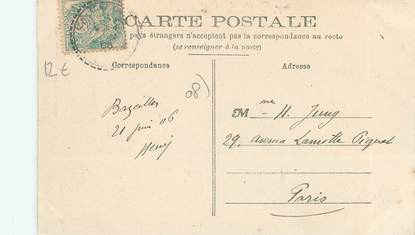 CARTE POSTALE
pays étrangers n'acceptent pas la correspondance au recto
(se renseigner à la poste)
Correspondance
Adresse
12 €
08)
Bazeilles
21 juin 06
Henri
Mme H. Jung
29, avenue Lamotte Piquet
Paris